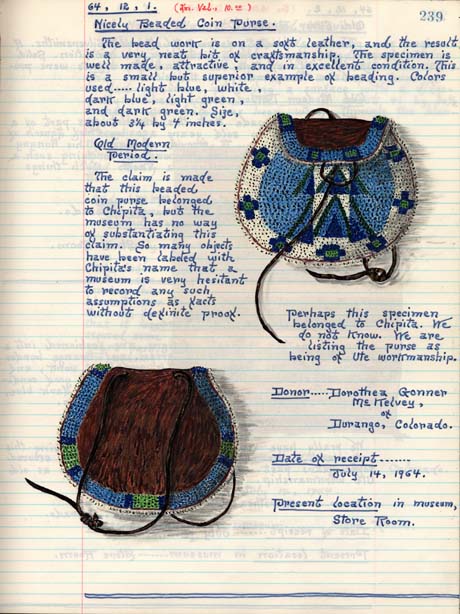 64, 12, 1. (Ins. Val., 10.00)
239
Nicely Beaded Coin Purse.
The bead work is on a soft leather, and the result
is a very neat bit of craftsmanship. The specimen is
well made, attractive, and in excellent condition. This
is a small but superior example of beading. Colors
used..... light blue, white,
dark blue, light green,
and dark green. Size,
about 3¾ by 4 inches.
Old Modern
Period.
The claim is made
that this beaded
coin purse belonged
to Chipita, but the
museum has no way
of substantiating this
claim. So many objects
have been labeled with
Chipita's name that a
museum is very hesitant
to record any such
assumptions as facts
without definite proof.
Perhaps this specimen
belonged to Chipita. We
do not know. We are
listing the purse as
being of Ute workmanship.
Donor..... Dorothea Gonner
McKelvey,
of
Durango, Colorado.
Date of receipt.......
July 14, 1964.
Present location in museum,
Store Room.